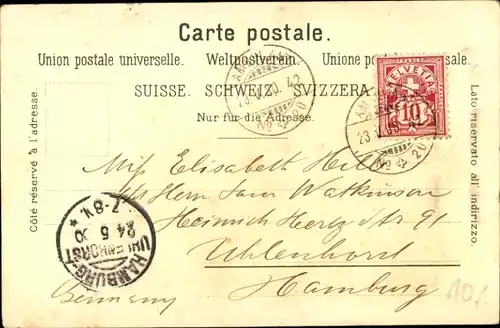 Carte postale.
Union postale universelle. Weltpostverein. Unione postale
SUISSE. SCHWEIZ. SVIZZERA.
Nur für die Adresse.
Côté réservé à l'adresse.
Lato riservato all indirizzo.
HELVETIA
10
Miss Elisabeth
Herrn Sam Watkinson
Heinrich Hertz str 91
Uhlenhorst
Hamburg
Germany
HAMBURG
UHLENHORST
24 5 00
7-8 V.
No 20
10/-